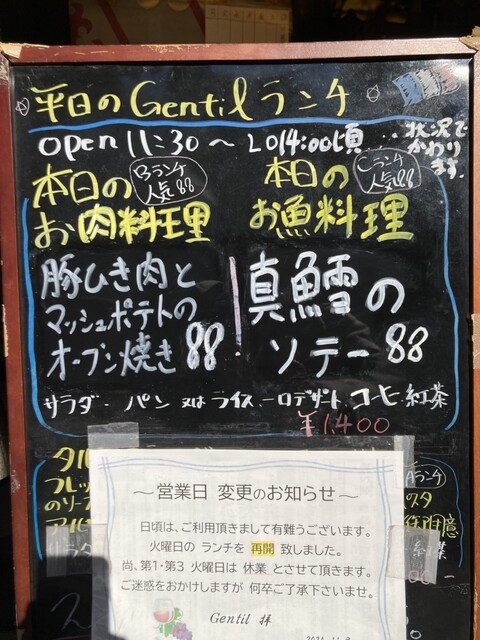 平日のGentilランチ
open 11:30 〜 LO14:00頃...状況で
かわり
ます
本日の
Bランチ
人気
お肉料理
本日の
Cランチ
人気
お魚料理
豚ひき肉と
マッシュポテトの
オーブン焼き
真鱈の
ソテー
サラダ・パン 又は ライス、一口デザート、コーヒー、紅茶
¥1,400
タル
フレッ
のソース
Aランチ
スタ
用意
サラダ
〜営業日 変更のお知らせ〜
日頃は、ご利用頂きまして有難うございます。
火曜日の ランチを 再開 致しました。
尚、第1・第3 火曜日は 休業 とさせて頂きます。
ご迷惑をおかけしますが 何卒ご了承下さいませ。
Gentil 拝